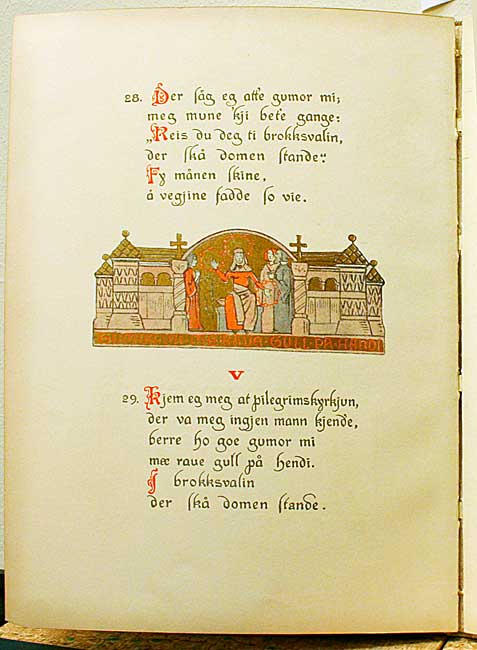 28. Der såg eg atte gumor mi;
meg mune 'kji bete gange:
„Reis du deg ti brokksvalin,
der skå domen stande."
Fy månen skine,
å vegjine fadde so vie.
GULL · PÅ · HENDI
V
29. Kjem eg meg at pilegrimskyrkjun,
der va meg ingjen mann kjende,
berre ho goe gumor mi
mæ raue gull på hendi.
I brokksvalin
der skå domen stande.